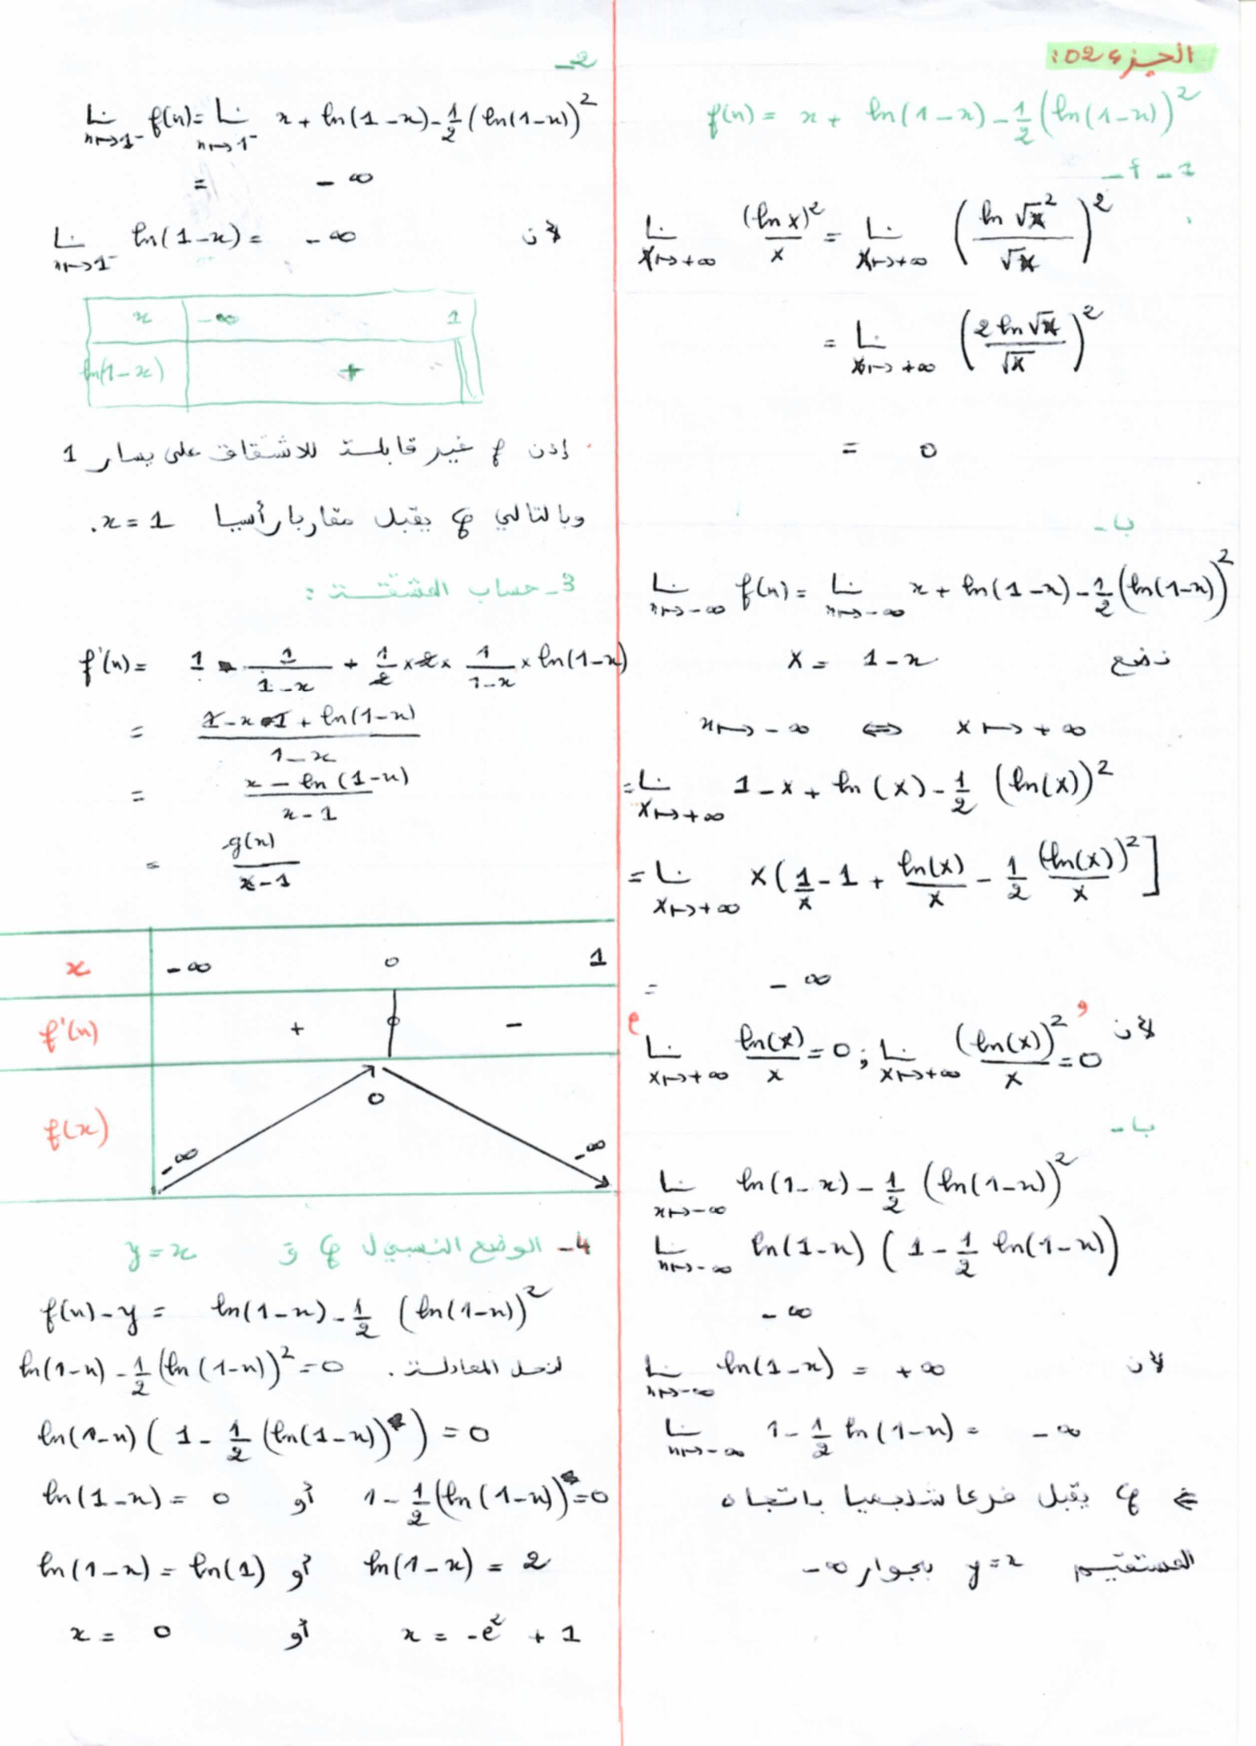 الجزء 02:
f(x) = x + ln(1-x) - 1/2 (ln(1-x))²
1 - أ -
Lim x→+∞ (ln x)²/x = Lim x→+∞ (ln √x²/√x)²
= Lim x→+∞ (2 ln √x/√x)²
= 0
ب -
Lim x→-∞ f(x) = Lim x→-∞ x + ln(1-x) - 1/2 (ln(1-x))²
نضع X = 1-x
x→-∞ ⇔ X→+∞
= Lim X→+∞ 1-X + ln(X) - 1/2 (ln(X))²
= Lim X→+∞ X(1/X - 1 + ln(X)/X - 1/2 (ln(X))²/X]
= -∞
لأن Lim X→+∞ ln(X)/X = 0 ; Lim X→+∞ (ln(X))²/X = 0
ب -
Lim x→-∞ ln(1-x) - 1/2 (ln(1-x))²
Lim x→-∞ ln(1-x) (1 - 1/2 ln(1-x))
-∞
لأن Lim x→-∞ ln(1-x) = +∞
Lim x→-∞ 1 - 1/2 ln(1-x) = -∞
⇐ φ يقبل فرعا شلجميا باتجاه
المستقيم y=x بجوار -∞
2 -
Lim x→1⁻ f(x) = Lim x→1⁻ x + ln(1-x) - 1/2 (ln(1-x))²
= -∞
لأن Lim x→1⁻ ln(1-x) = -∞
x -∞ 1
ln(1-x) +
إذن f غير قابلة للاشتقاق على يسار 1
وبالتالي φ يقبل مقاربا رأسيا x = 1.
3 - حساب المشتقة :
f'(x) = 1 - 1/(1-x) + 1/2 × 2 × 1/(1-x) × ln(1-x)
= (1-x-1 + ln(1-x))/(1-x)
= (x - ln(1-x))/(x-1)
= g(x)/(x-1)
x -∞ 0 1
f'(x) + 0 -
f(x) -∞ 0 -∞
4 - الوضع النسبي ل φ و y = x
f(x) - y = ln(1-x) - 1/2 (ln(1-x))²
لنحل المعادلة. ln(1-x) - 1/2 (ln(1-x))² = 0
ln(1-x) (1 - 1/2 (ln(1-x))) = 0
ln(1-x) = 0 أو 1 - 1/2 (ln(1-x)) = 0
ln(1-x) = ln(1) أو ln(1-x) = 2
x = 0 أو x = -e² + 1